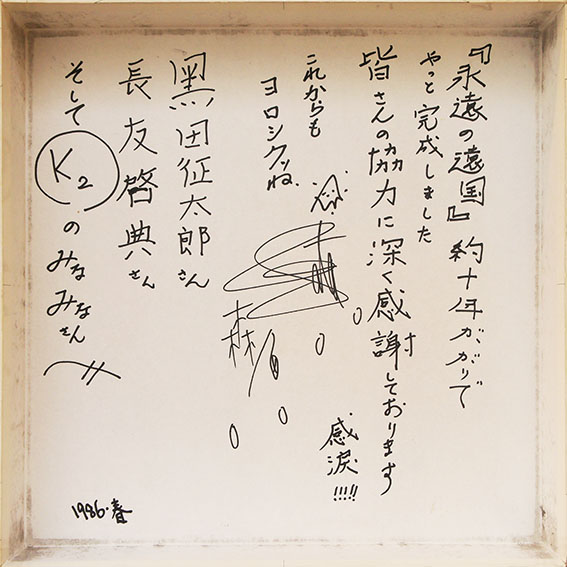 『永遠の遠国』約十年がかりで
やっと完成しました
皆さんの協力に深く感謝しております
感涙!!!!!
これからも
ヨロシクッね、
黒田征太郎さん
長友啓典さん
そして K₂ のみなみなさん
1986.春